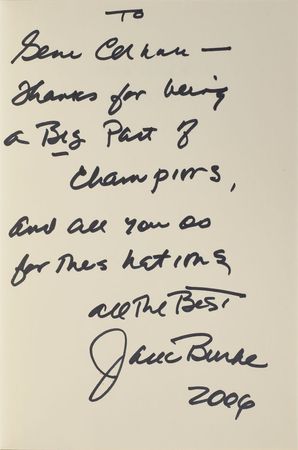 To
Gene Cernan —
Thanks for being
a Big Part of
Champions,
and all you do
for this nation,
all the Best
Jack Burke
2006